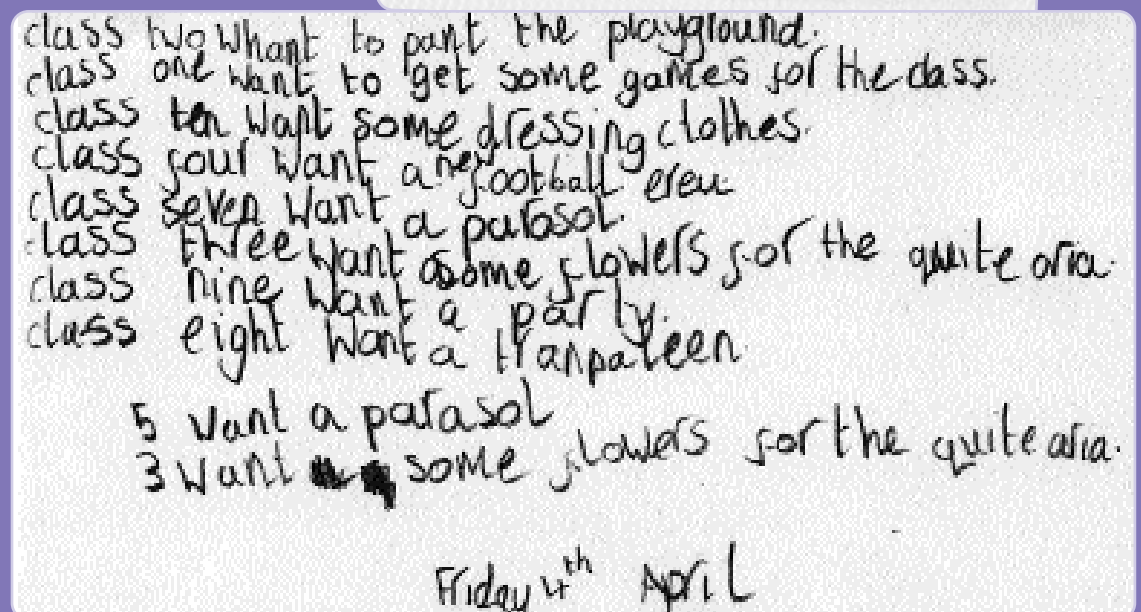 class two whant to pant the playground.
class one want to get some games for the class.
class ten want some dressing clothes.
class four want a new football ereu.
class seven want a parasol.
class three want some flowers for the quite aria.
class nine want a party.
class eight want a tranpaleen.
5 want a parasol
3 want some flowers for the quite aria.
Friday 4th April